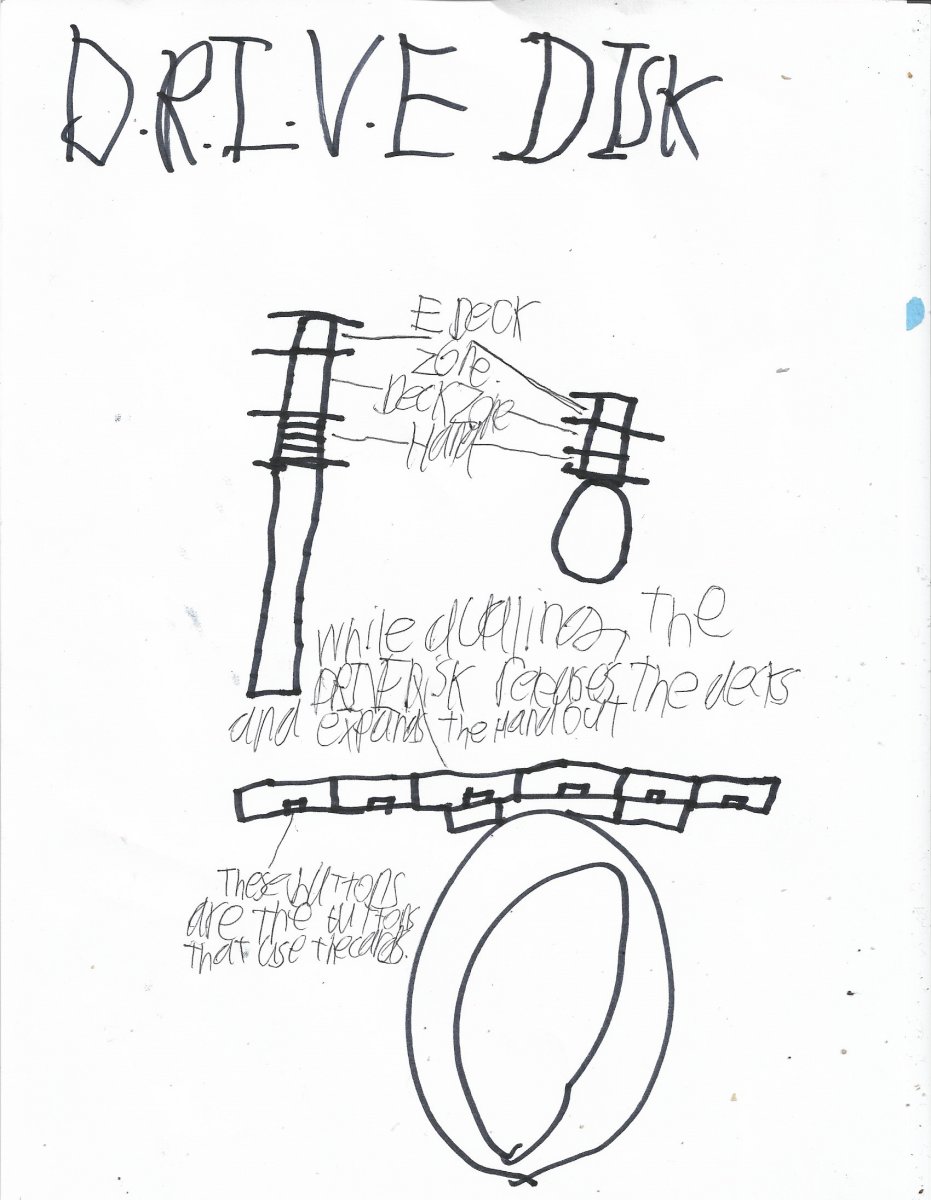 D.R.I.V.E DISK
E DECK
ZONE.
DECK Zone
Hand
While duelling, The
DRIVE DISK releases The decks
and expands the Hand out
These buttons
are the buttons
that use the cards.